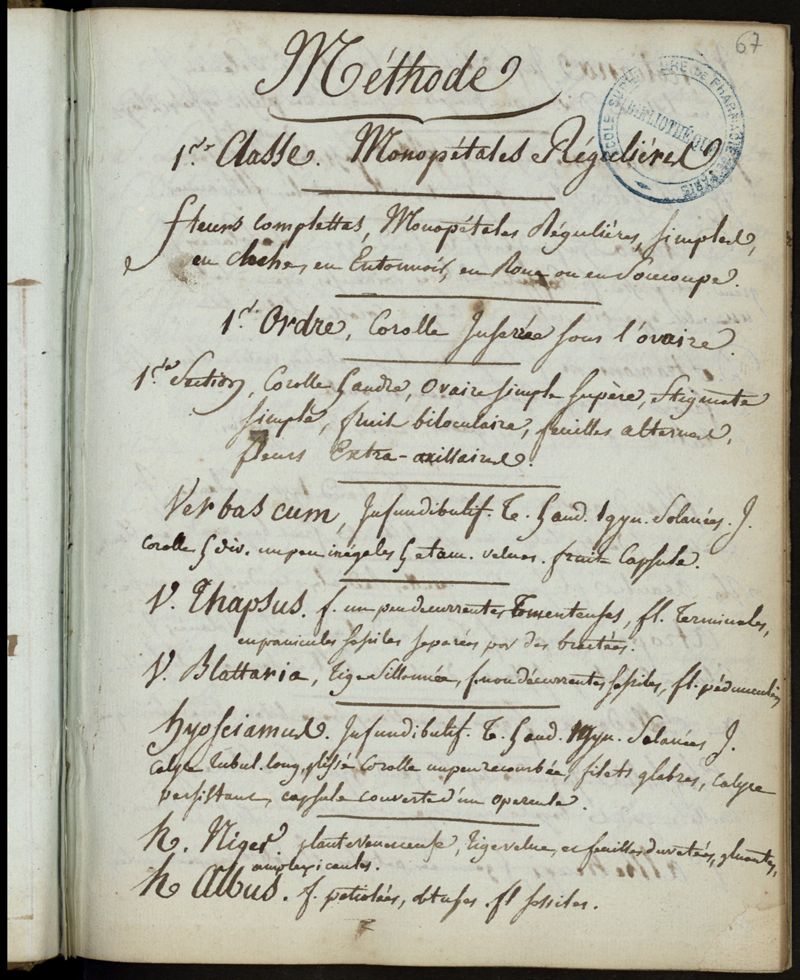 67
Méthode
ECOLE SUPRE DE PHARMACIE DE PARIS
BIBLIOTHÈQUE
1re Classe. Monopétales Régulières
fleurs complettes, Monopétales Régulières, simples,
en cloche, en Entonnoir, en Roue ou en Soucoupe.
1r. Ordre, Corolle Insérée sous l'ovaire.
1re Section, Corolle 5andre, Ovaire simple supère, Stigmate
simple, fruit biloculaire, feuilles alternes,
fleurs Extra-axillaires.
Verbascum, Infundibulif. T. 5and. 1gyn. Solanées. J.
Corolle 5 div. un peu inégales 5 etam. velues. fruit Capsule.
V. Thapsus. f. un peu decurrentes Tomenteuses, fl. Terminales,
en panicules sessiles separées par des bractées.
V. Blattaria, Tige Sillonnée, f. non décurrentes sessiles, fl. pédunculées
hyosciamus. Infundibulif. T. 5and. 1Gyn. Solanées J.
Calyce tubul. long, plissé Corolle un peu recourbée, filets glabres, Calyce
persistant, capsule couverte d'un opercule.
h. Niger. plante veneneuse, Tige velue, et feuilles duvetées, gluantes,
amplexicaules.
h Albus. f. petiolées, obtuses. fl sessiles.